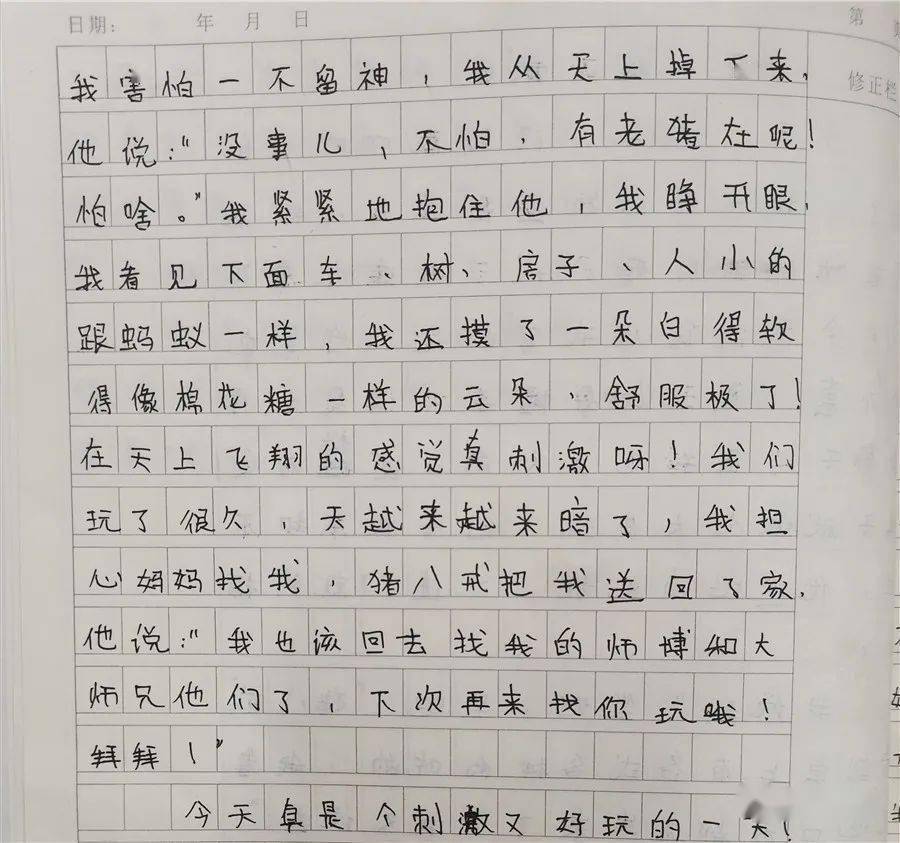 日期： 年 月 日 第
修正栏
我害怕一不留神，我从天上掉下来，
他说："没事儿，不怕，有老猪在呢！
怕啥。"我紧紧地抱住他，我睁开眼，
我看见下面车、树、房子、人小的
跟蚂蚁一样，我还摸了一朵白得软
得像棉花糖一样的云朵，舒服极了！
在天上飞翔的感觉真刺激呀！我们
玩了很久，天越来越来暗了，我担
心妈妈找我，猪八戒把我送回了家，
他说："我也该回去找我的师博和大
师兄他们了，下次再来找你玩哦！
拜拜！"
今天真是个刺激又好玩的一天！